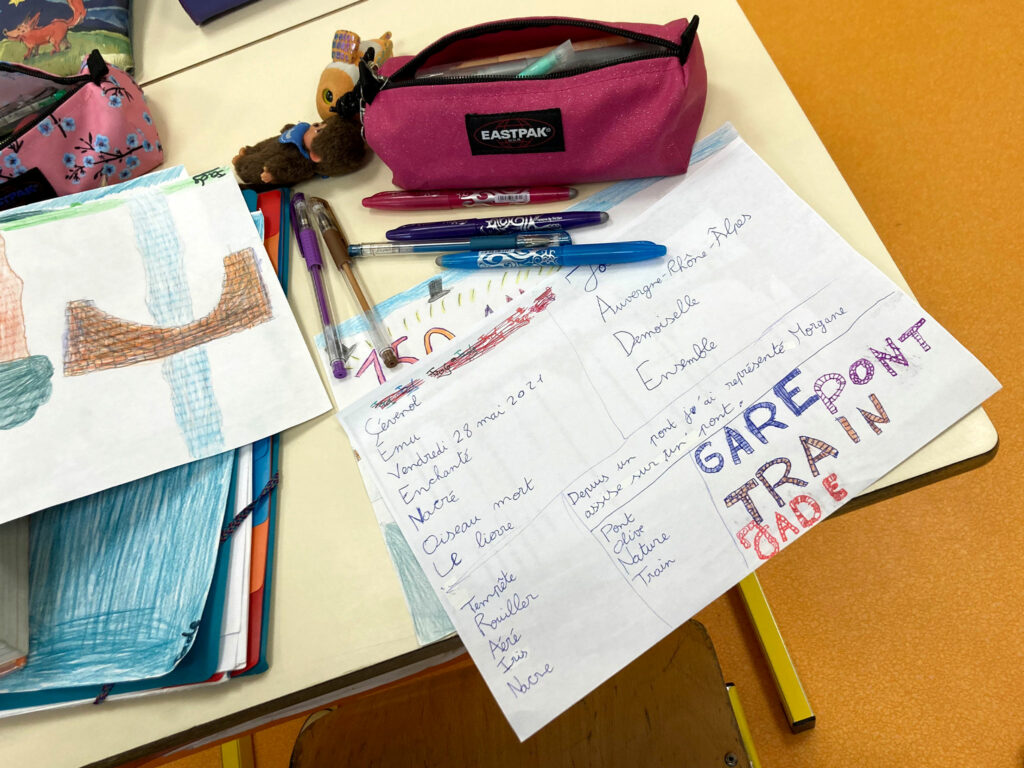 EASTPAK
150
Auvergne-Rhône-Alpes
Demoiselle
Ensemble
Cévenol
Emu
Vendredi 28 mai 2021
Enchanté
Nacré
Oiseau mort
Le lierre
Depuis un pont j'ai représenté Morgane
assise sur un pont.
Pont
Olive
Nature
Train
GARE PONT
TRAIN
JADE
Tempête
Rouiller
Aéré
Iris
Nacre